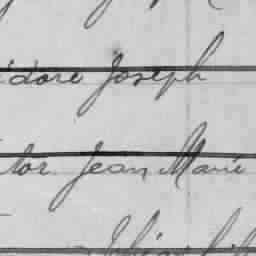 idore Joseph
tor Jean Marie